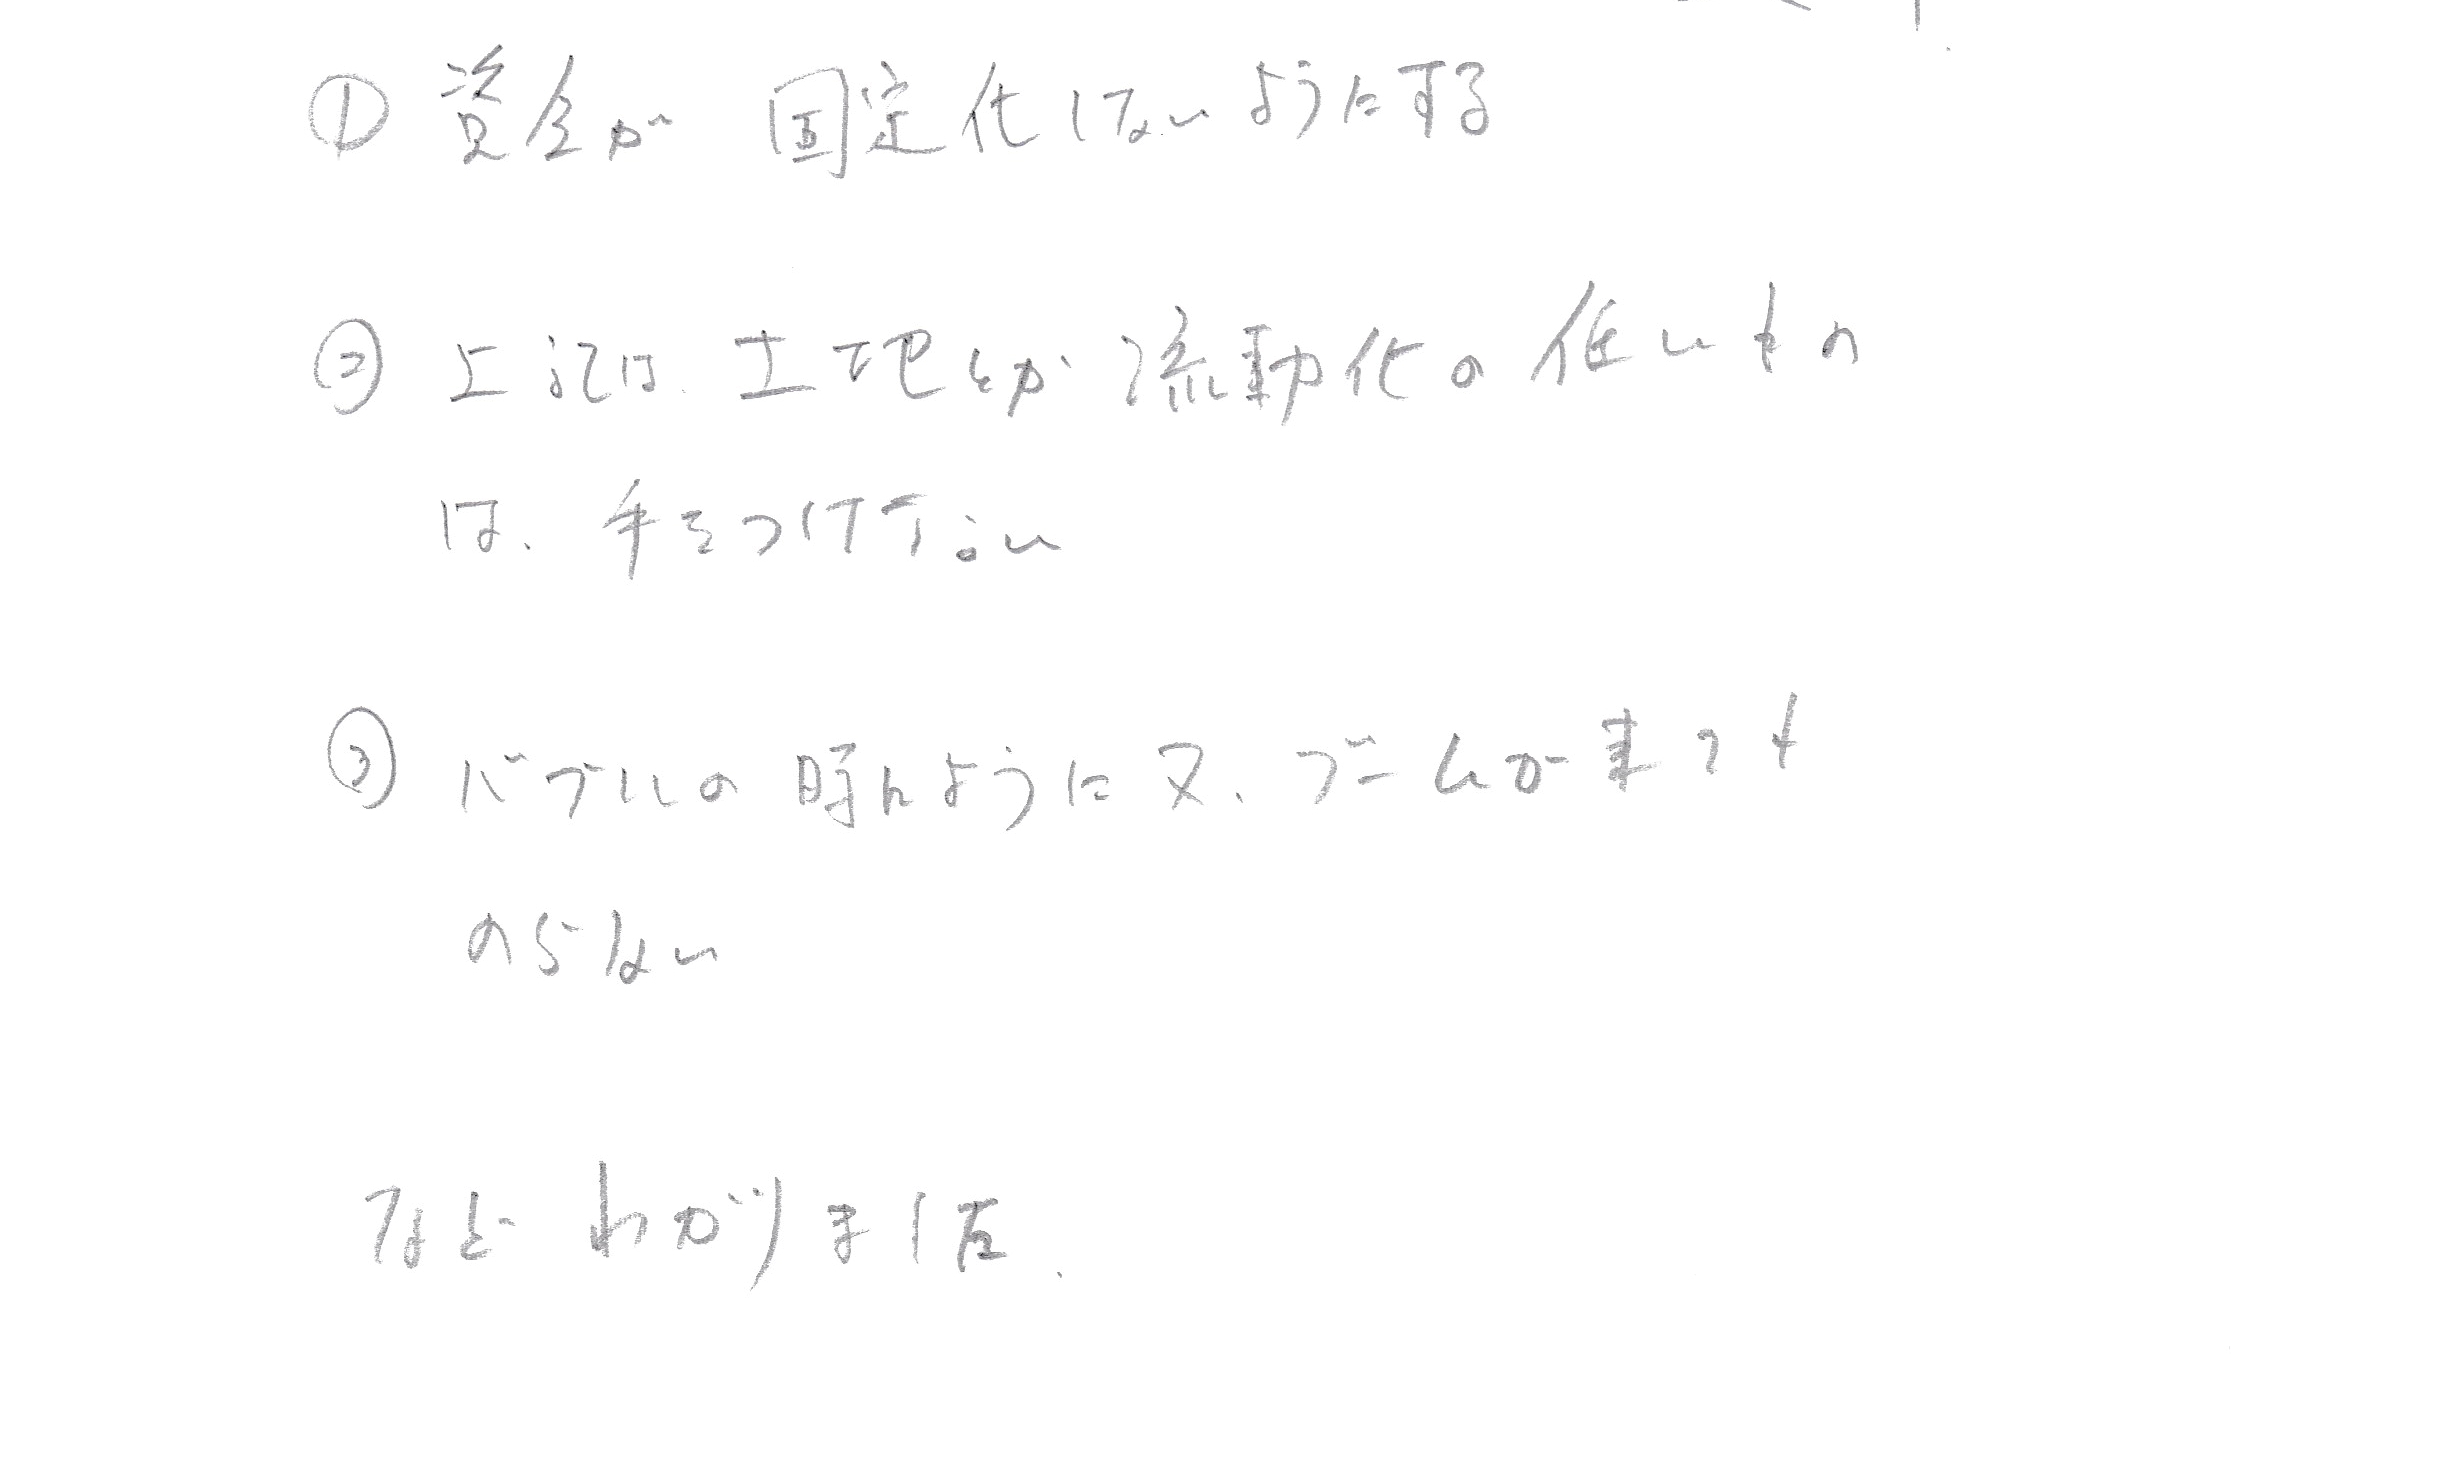 ① 資金が 固定化しないようにする
② 上記は、土地とか 流動化の低いもの
は、手をつけない
③ バブルの時のように又、ブームが来ても
のらない
など わかりました.